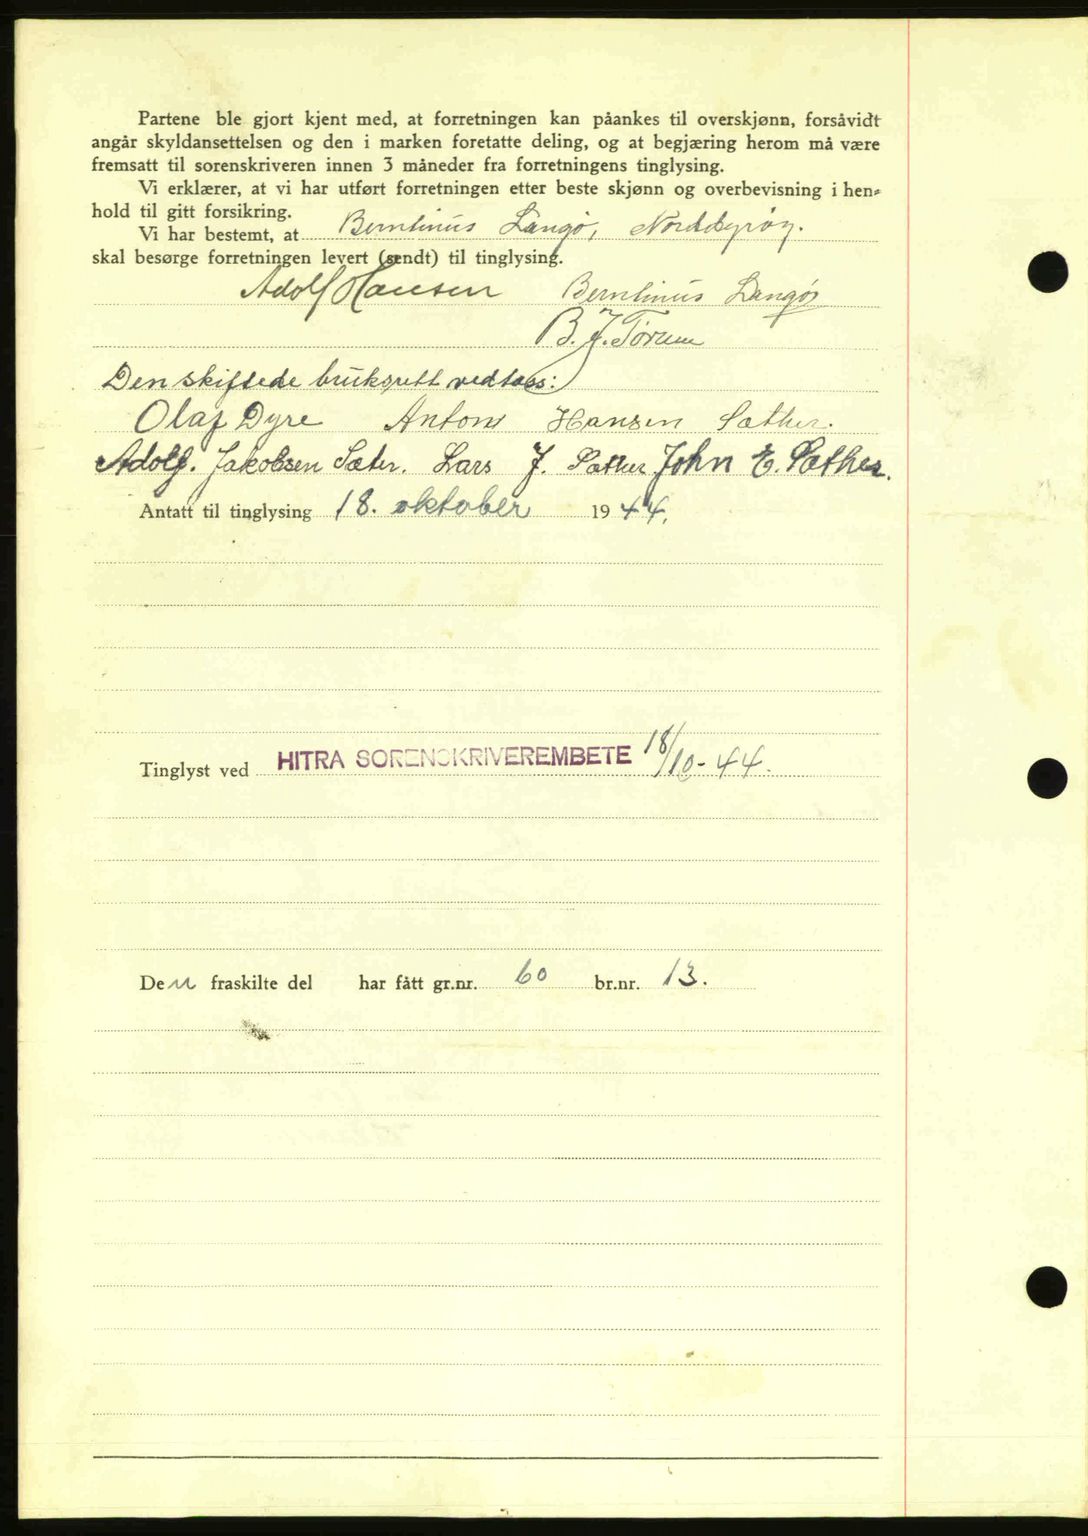 Partene ble gjort kjent med, at forretningen kan påankes til overskjønn, forsåvidt
angår skyldansettelsen og den i marken foretatte deling, og at begjæring herom må være
fremsatt til sorenskriveren innen 3 måneder fra forretningens tinglysing.
Vi erklærer, at vi har utført forretningen etter beste skjønn og overbevisning i hen-
hold til gitt forsikring.
Vi har bestemt, at Berntinus Langø, Norddyrøy.
skal besørge forretningen levert (sendt) til tinglysing.
Adolf Hansen Berntinus Langø
B. J. Tørum
Den skiftede bruksrett vedtas:
Olaf Dyre Anton Hansen Sæther.
Adolf. Jakobsen Sæter. Lars J. Sæther John E. Sæther.
Antatt til tinglysing 18. oktober 1944.
Tinglyst ved HITRA SORENSKRIVEREMBETE 18/10-44.
Den fraskilte del har fått gr.nr. 60 br.nr. 13.